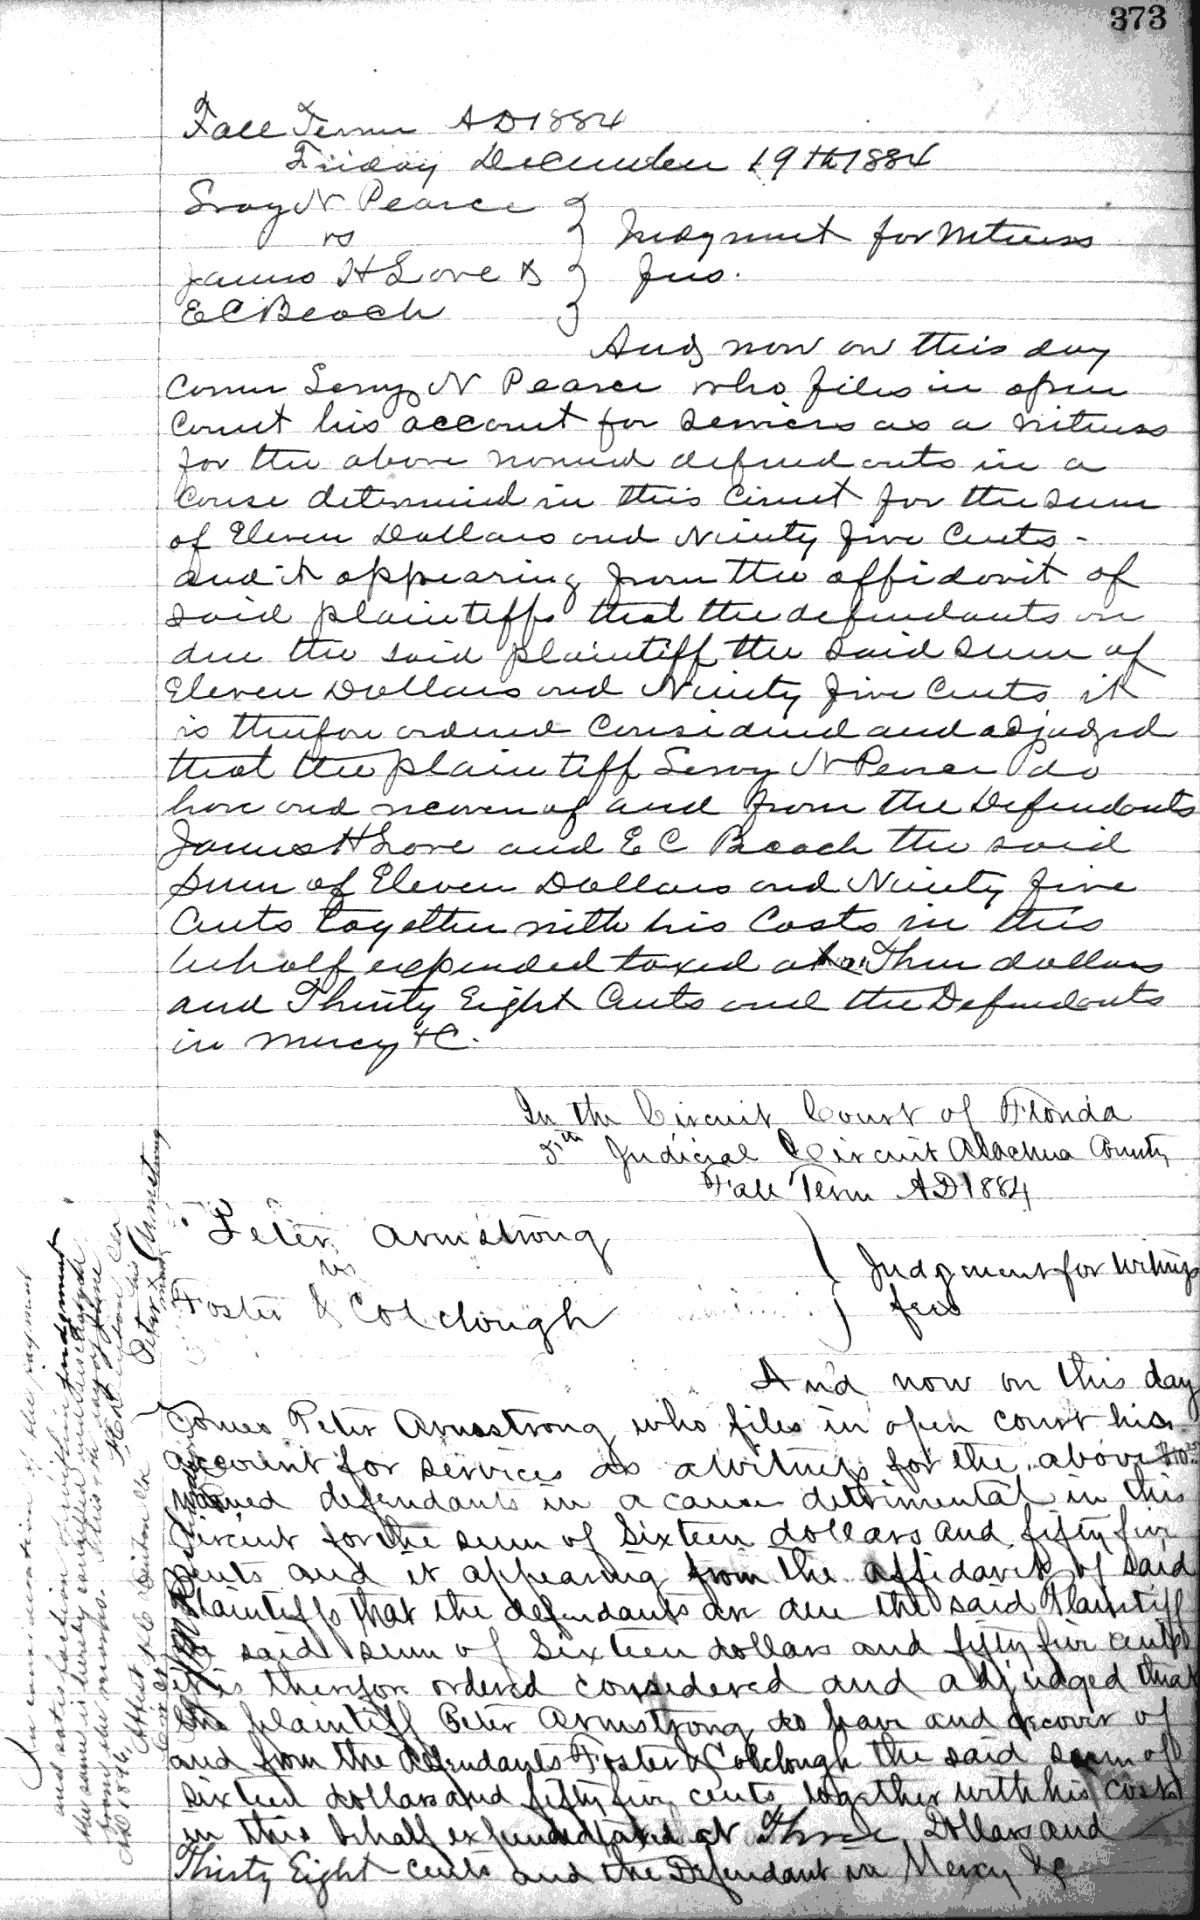 373
Fall Term AD 1884
Friday December 19th 1884
Leroy N Pearce
vs
James H Love &
E C Beach
Judgment for Witness
fees.
And now on this day
Comes Leroy N Pearce who files in open
Court his account for services as a witness
for the above named defendants in a
Cause determined in this Circuit for the sum
of Eleven Dollars and Ninety five Cents -
and it appearing from the affidavit of
said plaintiffs that the defendants are
due the said plaintiff the said sum of
Eleven Dollars and Ninety five Cents it
is therefore ordered Considered and adjudged
that the plaintiff Leroy N Pearce do
have and recover of and from the Defendants
James H Love and E C Beach the said
sum of Eleven Dollars and Ninety five
Cents together with his Costs in this
behalf expended taxed at Three dollars
and Thirty Eight Cents and the Defendants
in mercy &C.
In the Circuit Court of Florida
5th Judicial Circuit Alachua County
Fall Term AD 1884
Peter Armstrong
vs
Foster & Colclough
Judgment for Witness
fees
And now on this day
Comes Peter Armstrong who files in open court his
account for services as a Witness for the above
named defendants in a cause detrimental in this
Circuit for the sum of Sixteen dollars and fifty five
cents and it appearing from the affidavit of said
Plaintiffs that the defendants are due the said Plaintiff
said sum of Sixteen dollars and fifty five cents
it is therefore ordered considered and adjudged that
the plaintiff Peter Armstrong do have and recover of
and from the defendants Foster & Colclough the said sum of
sixteen dollars and fifty five cents together with his costs
in this behalf expended taxed at Three Dollars and
Thirty Eight cents and the Defendant in Mercy &c
In consideration of the payment
and satisfaction of within judgment
the same is hereby cancelled and discharged
from the records. This the day of June
AD 1896.
Attest
Peter his x mark Armstrong